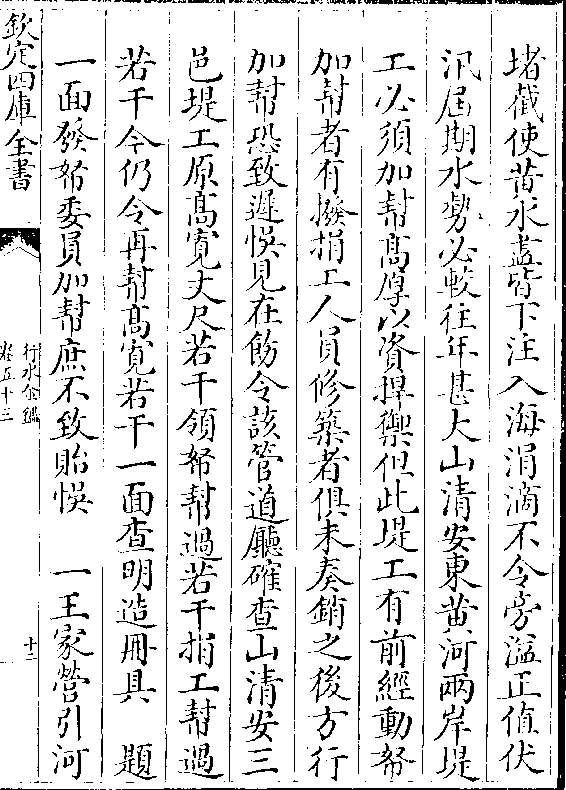 堵截使黄水盡皆下注入海涓滴不令旁溢正值伏
汛屆期水勢必較往年甚大山清安東黄河兩岸堤
工必須加幇髙厚以資捍禦但此堤工有前經動帑
加幇者有撥捐工人員修築者俱未奏銷之後方行
加幇恐致遲悞見在飭令該管道廳確查山清安三
邑堤工原髙寛丈尺若干領帑幇過若干捐工幇過
若干今仍令再幇髙寛若干一面查明造冊具　題
一面發帑委員加幇庶不致貽悞　一王家營引河
欽定四庫全書
行水金鑑
卷五十三
十二